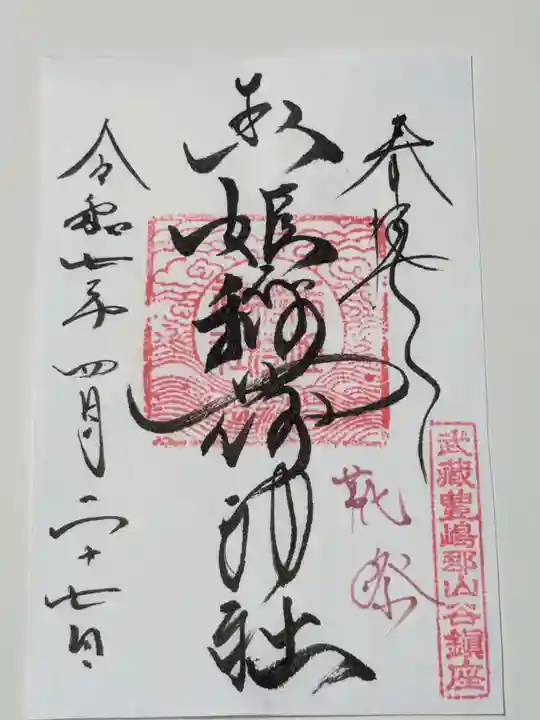 奉拝
靴祭
武蔵豊嶋郡山谷鎮座
玉姫稲荷神社
令和七年四月二十七日